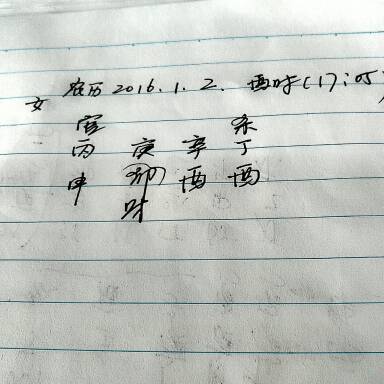 女 农历2016.1.2. 酉时(17:05)
官 杀
丙 庚 辛 丁
申 卯 酉 酉
财